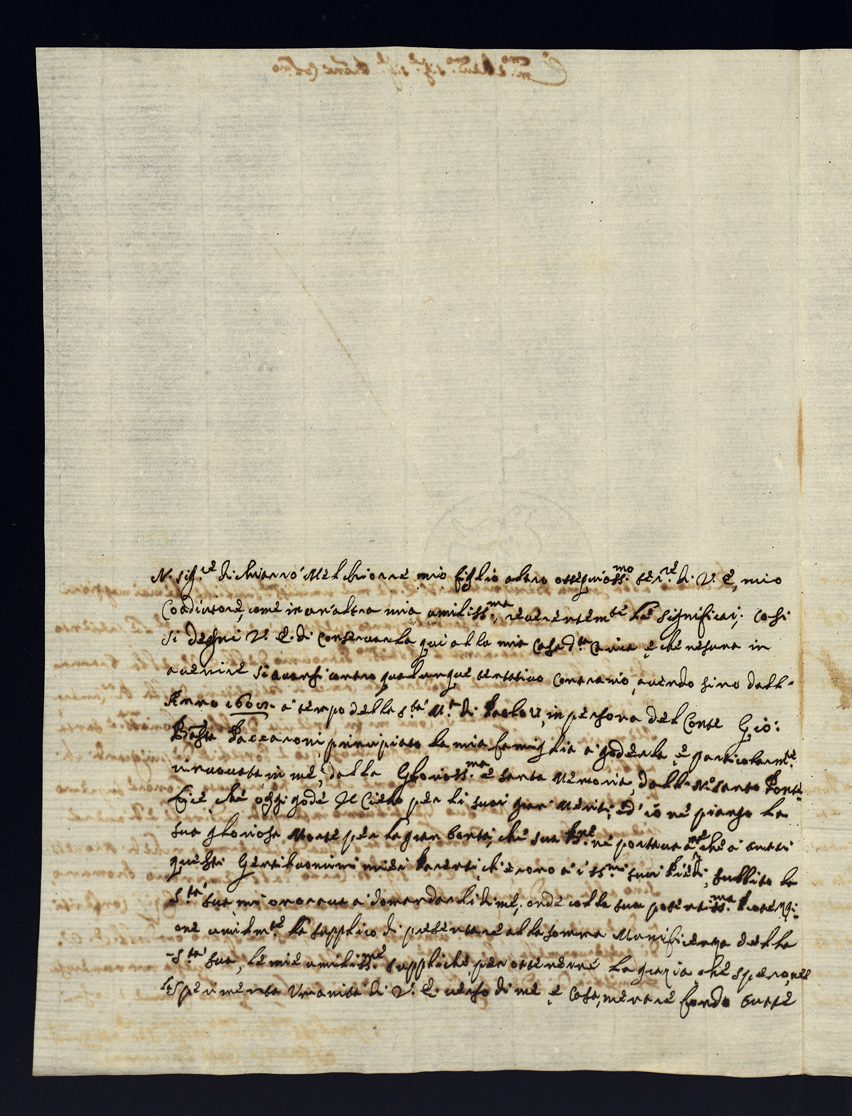 N. Sig.re di chiarirò Melchiorre mio figlio altro ossequioss.mo ser.re di V. E., mio
Coadiutore, come in un'altra mia umiliss.ma, reverentem.te le significai; così
si degni V. E. di conservarla qui alla mia Casa d.ta Carica, e che resura in
avenire si avarsi contro qualunque tentativo contrario, avendo sino dall'
Anno 1605. a tempo della S.ta M.a di Paolo V, in persona del Conte Gio:
Batta Paccaroni principiato la mia famiglia a goderla, e particolarm.te
rinovata in me, dalla Glorioss.ma e santa Memoria, dell' N. Santo Ponte
fice, che oggi gode il Cielo per li suoi gran Meriti, ed' io ne piango la
sua gloriosa Morte per la gran bontà, che sua B.ne ne portava a me, che a tutti
questi Gentiluomini miei Parenti, ch'erono a i SS.mi suoi Piedi, subbito la
S.tà sua mi onorava a domandarli di me; onde colla sua potentiss.ma Protezzi:
one umilm.te la supplico di presentare alla somma Munificenza della
S.tà sua, le mie umiliss.me suppliche per ottenerne la grazia che spero, nell'
esperimentata Umanità di V. E. verso di me, e Casa, mentre